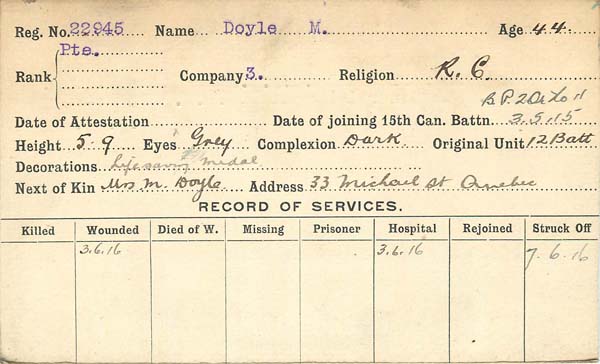 Reg. No. 22945 Name Doyle M. Age 44.
Pte.
Rank Company 3. Religion R. C.
Date of Attestation Date of joining 15th Can. Battn. 3.5.15
Height 5-9 Eyes Grey Complexion Dark Original Unit 12 Batt
Decorations Life saving medal
Next of Kin Mrs M. Doyle Address 33 Michael St Quebec
RECORD OF SERVICES.
Killed Wounded Died of W. Missing Prisoner Hospital Rejoined Struck Off
3.6.16 3.6.16 7.6.16